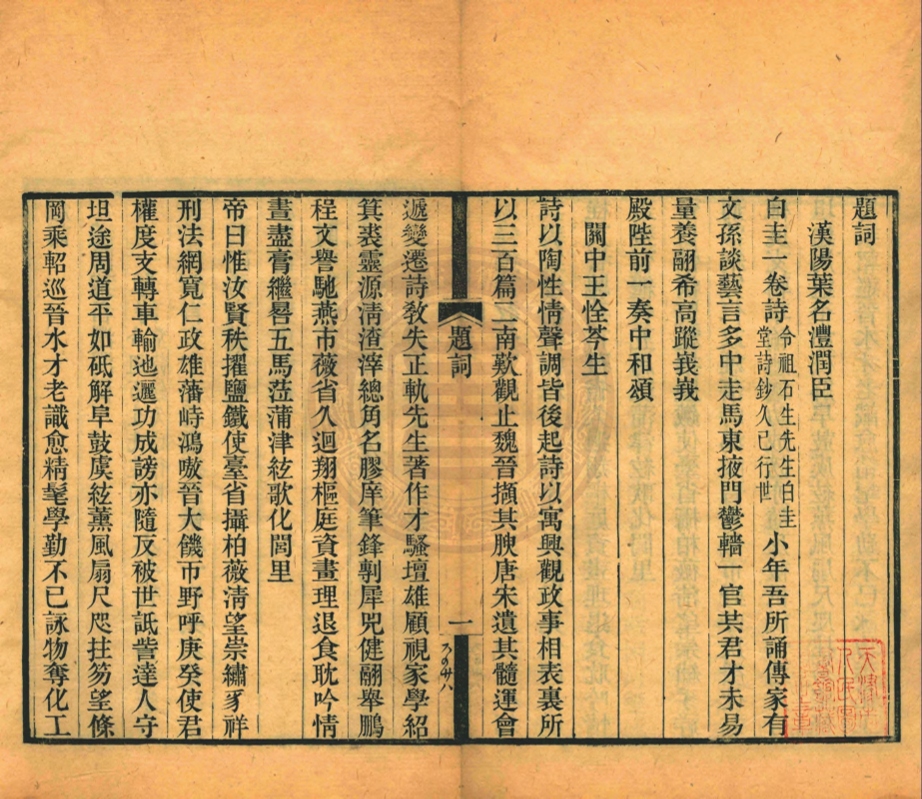 題詞
漢陽葉名灃潤臣
白圭一卷詩令祖石生先生白圭堂詩鈔久已行世小年吾所誦傳家有
文孫談藝言多中走馬東掖門鬱轖一官共君才未易
量養翮希高蹤峩峩
殿陛前一奏中和頌
關中王恮芩生
詩以陶性情聲調皆後起詩以寓興觀政事相表裏所
以三百篇二南歎觀止魏晉擷其腴唐宋遺其髓運會
題詞
一
遞變遷詩敎失正軌先生著作才騷壇雄顧視家學紹
箕裘靈源淸渣滓總角名膠庠筆鋒剸犀兕健翮舉鵬
程文譽馳燕市薇省久迴翔樞庭資畫理退食耽吟情
晝盡膏繼晷五馬蒞蒲津絃歌化閭里
帝曰惟汝賢秩擢鹽鐵使臺省攝柏薇淸望崇繡豸祥
刑法網寬仁政雄藩峙鴻嗷晉大饑市野呼庚癸使君
權度支轉車輸迆邐功成謗亦隨反被世詆訾達人守
坦途周道平如砥解阜鼓虞絃薰風扇尺咫拄笏望條
岡乘軺巡晉水才老識愈精髦學勤不已詠物奪化工